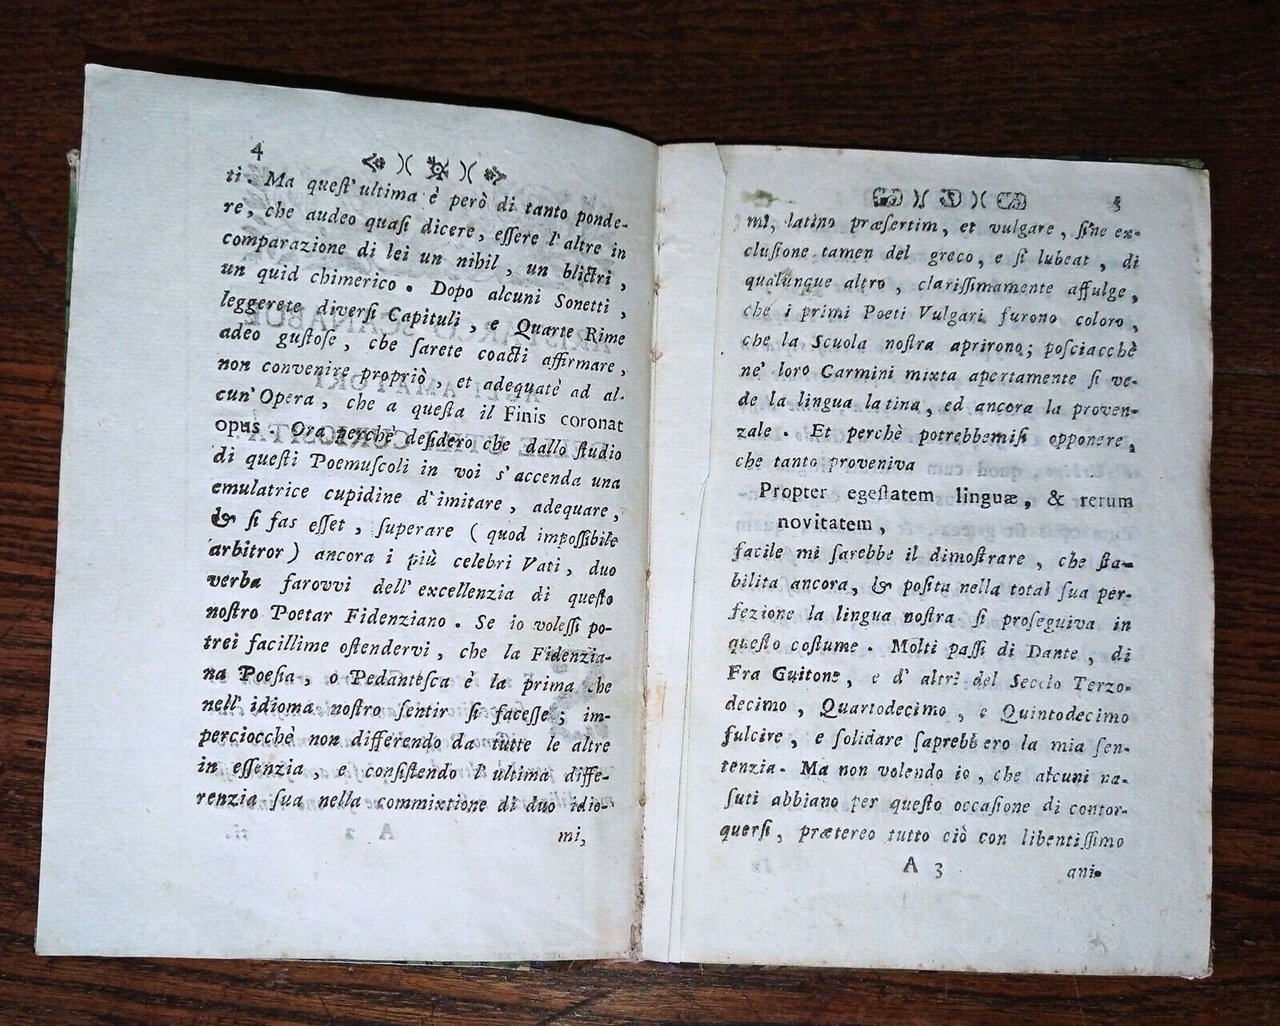 4
ti. Ma queſt'ultima è però di tanto ponde-
re, che audeo quaſi dicere, eſſere l'altre in
comparazione di lei un nihil, un blictri,
un quid chimerico. Dopo alcuni Sonetti,
leggerete diverſi Capituli, e Quarte Rime
adeo guſtoſe, che ſarete coacti affirmare,
non convenire propriò, et adequatè ad al-
cun' Opera, che a queſta il Finis coronat
opus. Ora perchè deſidero che dallo ſtudio
di queſti Poemuſcoli in voi s'accenda una
emulatrice cupidine d'imitare, adequare,
& ſi fas eſſet, ſuperare (quod impoſſibile
arbitror) ancora i più celebri Vati, duo
verba farovvi dell'excellenzia di queſto
noſtro Poetar Fidenziano. Se io voleſſi po-
trei facillime oſtendervi, che la Fidenzia-
na Poeſia, o Pedanteſca è la prima che
nell'idioma noſtro ſentir ſi faceſſe; im-
perciocchè non differendo da tutte le altre
in eſſenzia, e conſiſtendo l'ultima diffe-
renzia ſua nella commixtione di duo idio-
mi,
5
mi, latino præſertim, et vulgare, ſine ex-
cluſione tamen del greco, e ſi lubeat, di
qualunque altro, clariſſimamente affulge,
che i primi Poeti Vulgari furono coloro,
che la Scuola noſtra aprirono; poſciacchè
ne' loro Carmini mixta apertamente ſi ve-
de la lingua latina, ed ancora la proven-
zale. Et perchè potrebbemiſi opponere,
che tanto proveniva
Propter egeſtatem linguæ, & rerum
novitatem,
facile mi ſarebbe il dimoſtrare, che ſta-
bilita ancora, & poſita nella total ſua per-
fezione la lingua noſtra ſi proſeguiva in
queſto coſtume. Molti paſſi di Dante, di
Fra Guitone, e d' altri del Secolo Terzo-
decimo, Quartodecimo, e Quintodecimo
fulcire, e ſolidare ſaprebbero la mia ſen-
tenzia. Ma non volendo io, che alcuni na-
ſuti abbiano per queſto occaſione di contor-
querſi, prætereo tutto ciò con libentiſſimo
A 3 ani-